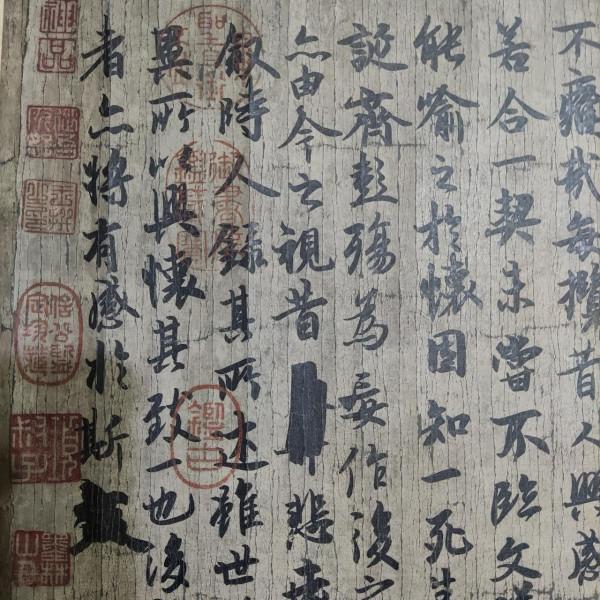 不痛哉每攬昔人興感
若合一契未嘗不臨文嗟
能喻之於懷固知一死生
誕齊彭殤為妄作後之
亦由今之視昔悲夫
敘時人錄其所述雖世
異所以興懷其致一也後
者亦將有感於斯文
神品